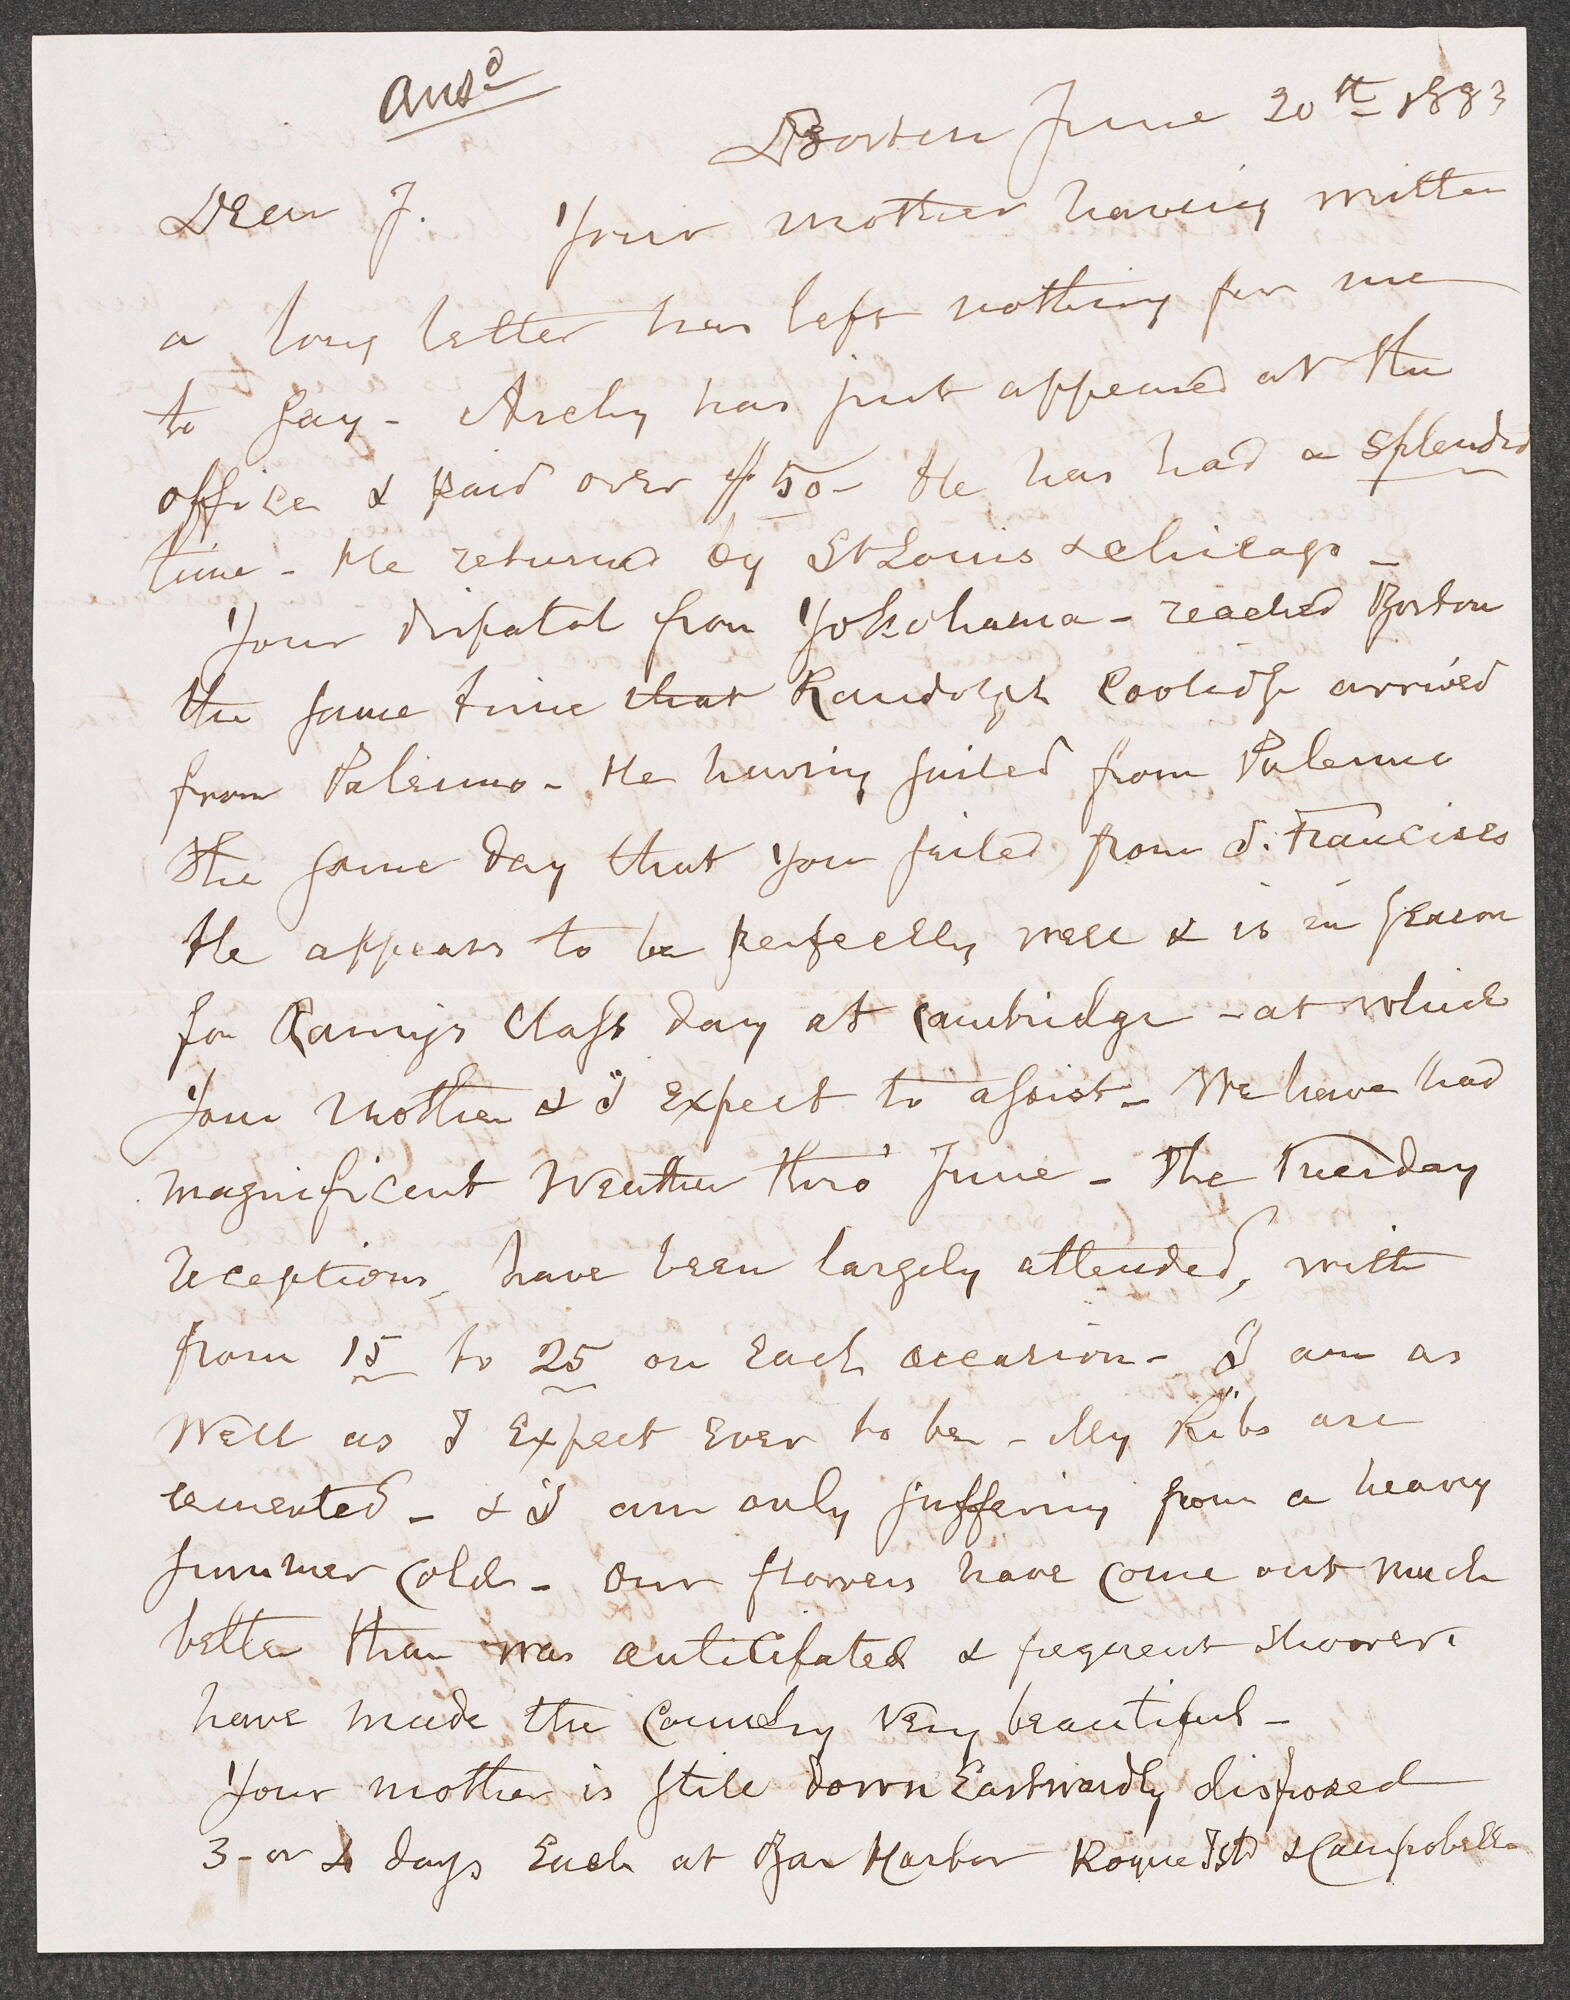 Ansd
Boston June 20th 1883
Dear J. Your mother having written
a long letter has left nothing for me
to say - Archy has just appeared at the
office & paid over $50 - He has had a splendid
time - He returned by St Louis & Chicago -
Your dispatch from Yokohama - reached Boston
the same time that Randolph Coolidge arrived
from Palermo - He having sailed from Palermo
the same day that you sailed from S. Francisco
He appears to be perfectly well & is in season
for Class day at Cambridge - at which
Your mother & I expect to assist - We have had
magnificent Weather thro' June - The Tuesday
receptions, have been largely attended, with
from 15 to 25 on each occasion - I am as
Well as I expect ever to be - My Ribs are
cemented - & I am only suffering from a heavy
summer cold - Our flowers have come out much
better than was anticipated & frequent showers
have made the country very beautiful -
Your mother is still down Eastwardly disposed
3 - or 4 days each at Bar Harbor Roque Isld & Campobello